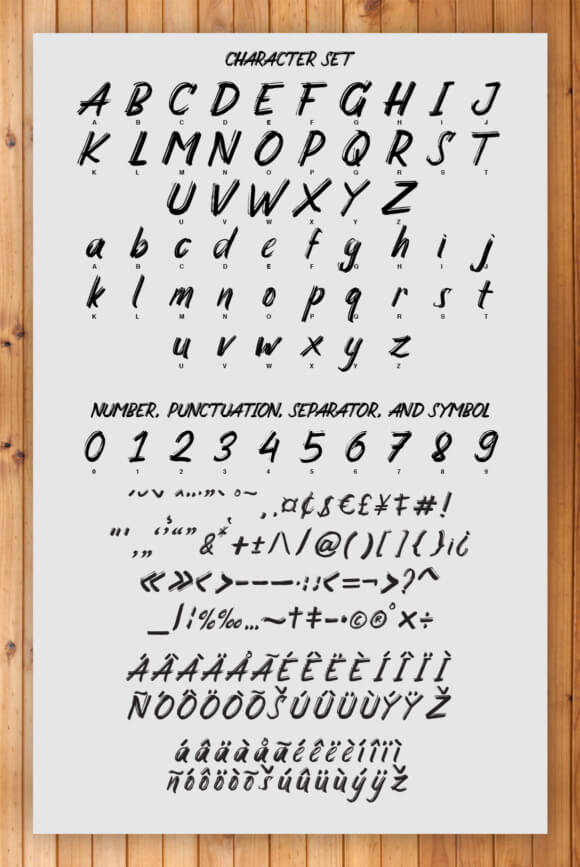 CHARACTER SET
A B C D E F G H I J
A B C D E F G H I J
K L M N O P Q R S T
K L M N O P Q R S T
U V W X Y Z
U V W X Y Z
a b c d e f g h i j
A B C D E F G H I J
k l m n o p q r s t
K L M N O P Q R S T
u v w x y z
U V W X Y Z
NUMBER, PUNCTUATION, SEPARATOR, AND SYMBOL
0 1 2 3 4 5 6 7 8 9
0 1 2 3 4 5 6 7 8 9
¤ ¢ $ € £ ¥ ‡ # !
& * + ± / \ / @ ( ) [ ] { } ¡ ¿
« » < > - – — · : ; < = ¬ > ? ^
_ | ¦ % ‰ … ~ † ‡ – • © ® ° × ÷
Á Â À Ä Å Ã É Ê Ë È Í Î Ï Ì
Ñ Ó Ô Ö Ò Õ Š Ú Û Ü Ù Ý Ÿ Ž
á â ä à å ã é ê ë è í î ï ì
ñ ó ô ö ò õ š ú û ü ù ý ÿ ž